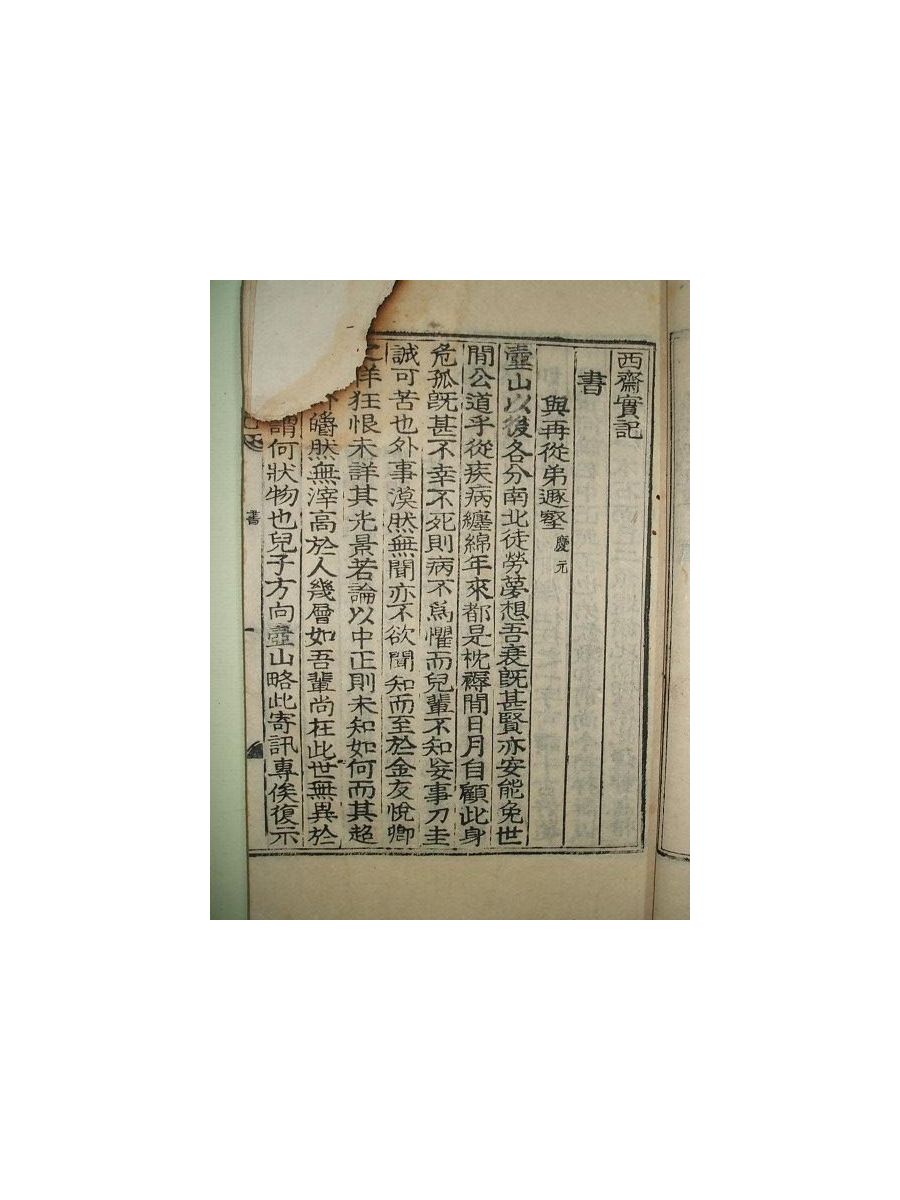 西齋實記
書
與再從弟遯壑 慶元
壺山以後各分南北徒勞夢想吾衰旣甚賢亦安能免世
間公道乎從疾病纏綿年來都是枕褥間日月自顧此身
危孤旣甚不幸不死則病不爲懼而兒輩不知妄事刀圭
誠可苦也外事漠然無聞亦不欲聞知而至於金友悅卿
之佯狂恨未詳其光景若論以中正則未知如何而其超
皭然無滓高於人幾層如吾輩尚在此世無異於
謂何狀物也兒子方向壺山略此寄訊專俟復示
書